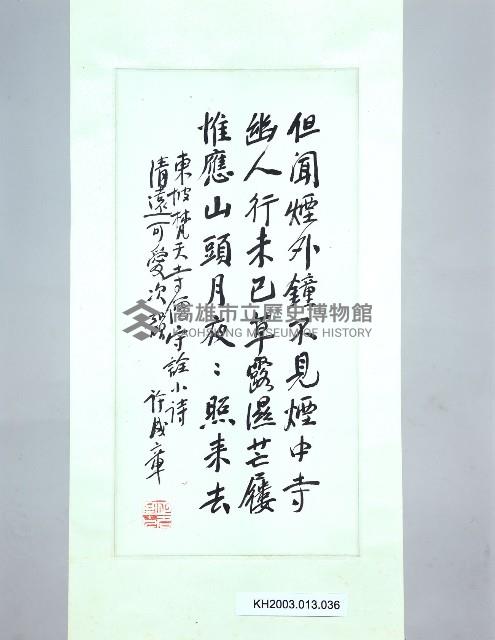 但聞煙外鐘不見煙中寺
幽人行未已草露濕芒屨
惟應山頭月夜：照来去
東坡梵天寺僧守詮小詩
清遠可愛次韻
許成章
高雄市立歷史博物館
KAOHSIUNG MUSEUM OF HISTORY
KH2003.013.036